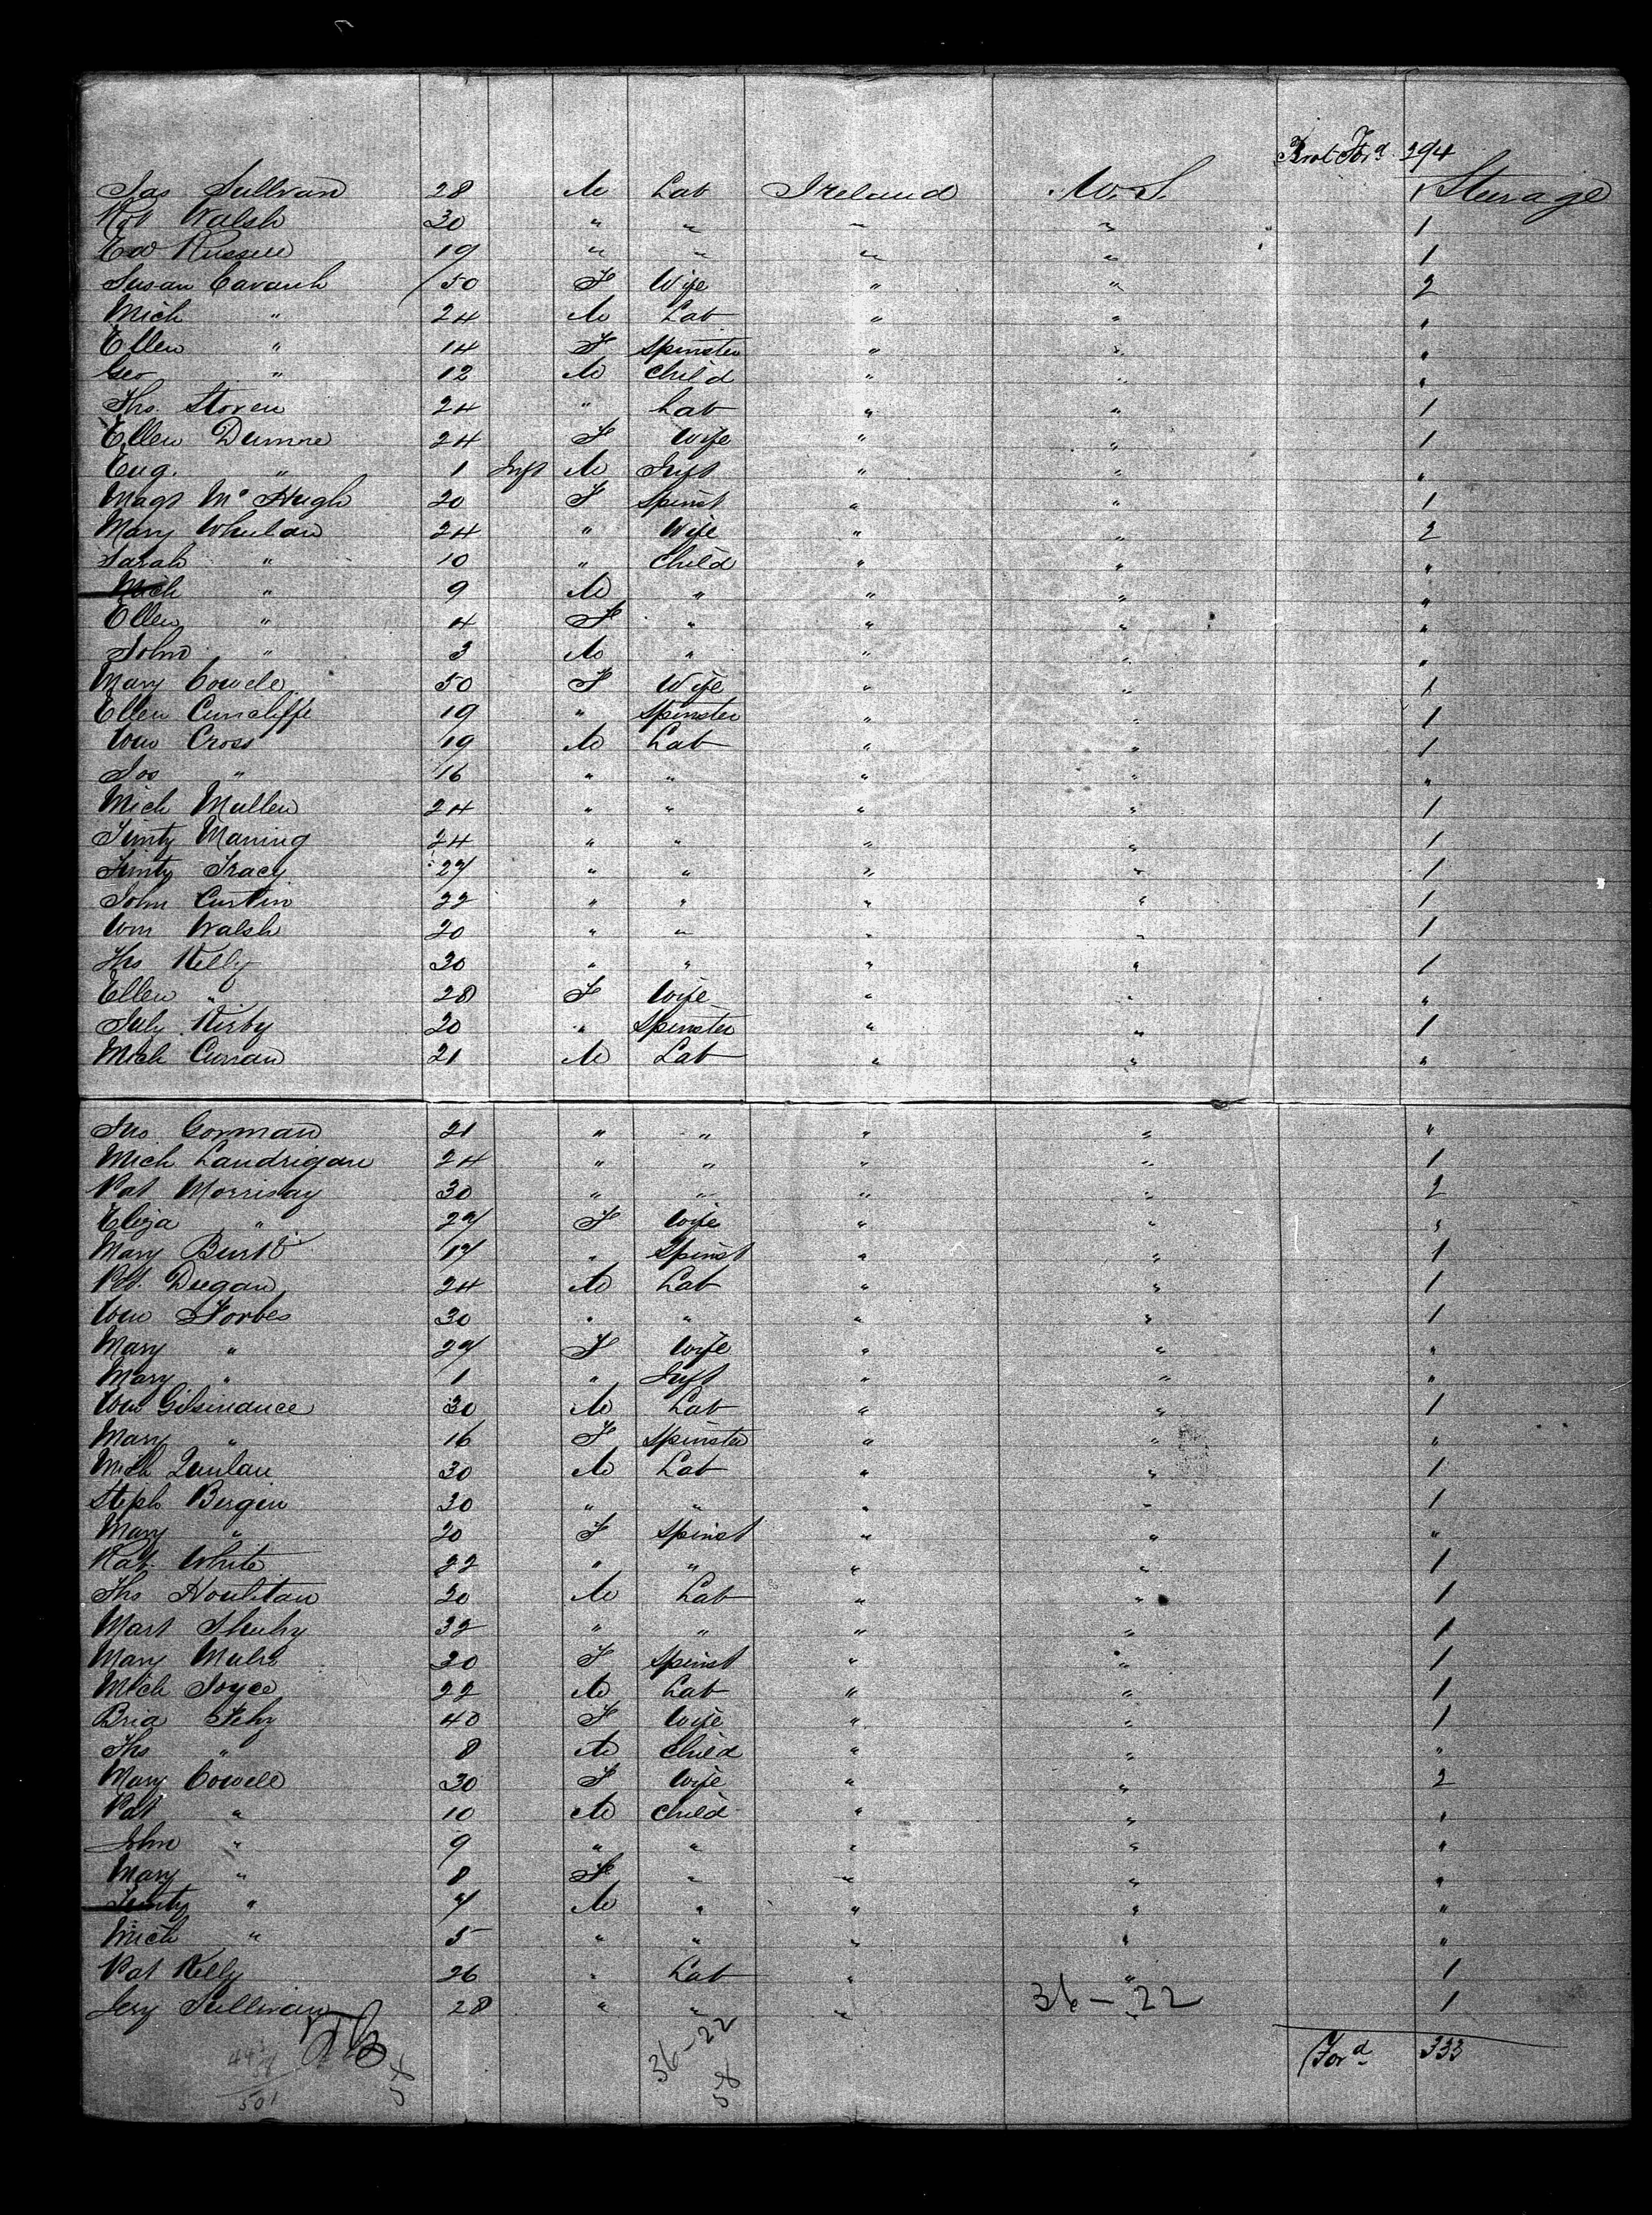 Brot Ford 294
Jas Sullivan 28 M Lab Ireland U.S. 1 Steerage
Rob Walsh 30 " " " " 1
Ed Russell 19 " " " " 1
Susan Cavanh 50 F Wife " " 2
Mich " 24 M Lab " " "
Ellen " 14 F Spinster " " "
Geo " 12 M Child " " "
Ths. Storen 24 " Lab " " 1
Ellen Dunne 24 F Wife " " 1
Eug. " 1 Inft M Inft " " "
Magt Mc Hugh 20 F Spinst " " 1
Mary Whelan 24 " Wife " " 2
Sarah " 10 " Child " " "
Mich " 9 M " " " "
Ellen " 4 F " " " "
John " 3 M " " " "
Mary Cowele 50 F Wife " " 1
Ellen Cuncliffe 19 " Spinster " " 1
Wm Cross 19 M Lab " " 1
Jos " 16 " " " " "
Mich Mullen 24 " " " " 1
Timty Maning 24 " " " " 1
Timty Tracy 27 " " " " 1
John Curtin 22 " " " " 1
Wm Walsh 20 " " " " 1
Ths Kelly 30 " " " " 1
Ellen " 28 F Wife " " "
July Kirby 20 " Spinster " " 1
Mich Curran 21 M Lab " " "
Jno. Gorman 21 " " " " "
Mich Landrigan 24 " " " " 1
Pat Morrisay 30 " " " " 2
Eliza " 27 F Wife " " "
Mary Burt 17 " Spinst " " 1
Pat. Deegan 24 M Lab " " 1
Wm Forbes 30 " " " " 1
Mary " 27 F Wife " " "
Mary " 1 " Inft " " "
Wm Gilsinance 30 M Lab " " 1
Mary " 16 F Spinster " " "
Mich Qunlan 30 M Lab " " 1
Steph Bergin 30 " " " " 1
Mary " 20 F Spinst " " "
Kat. White 22 " " " " 1
Ths Houlitan 20 M Lab " " 1
Mart 32 " " " " 1
Mary 20 F Spinst " " 1
Mich Joyce 22 M Lab " " 1
Brid Fehy 40 F Wife " " 1
Ths " 8 M Child " " "
Mary Cowele 30 F Wife " " 2
Pat " 10 M Child " " "
John " 9 " " " " "
Mary " 8 F " " " "
Timty " 7 M " " " "
Mich " 5 " " " " "
Pat Kelly 26 " Lab " " 1
Jery Sullivan 28 " " " " 1
36-22
Ford 333
36-22
58
58
501